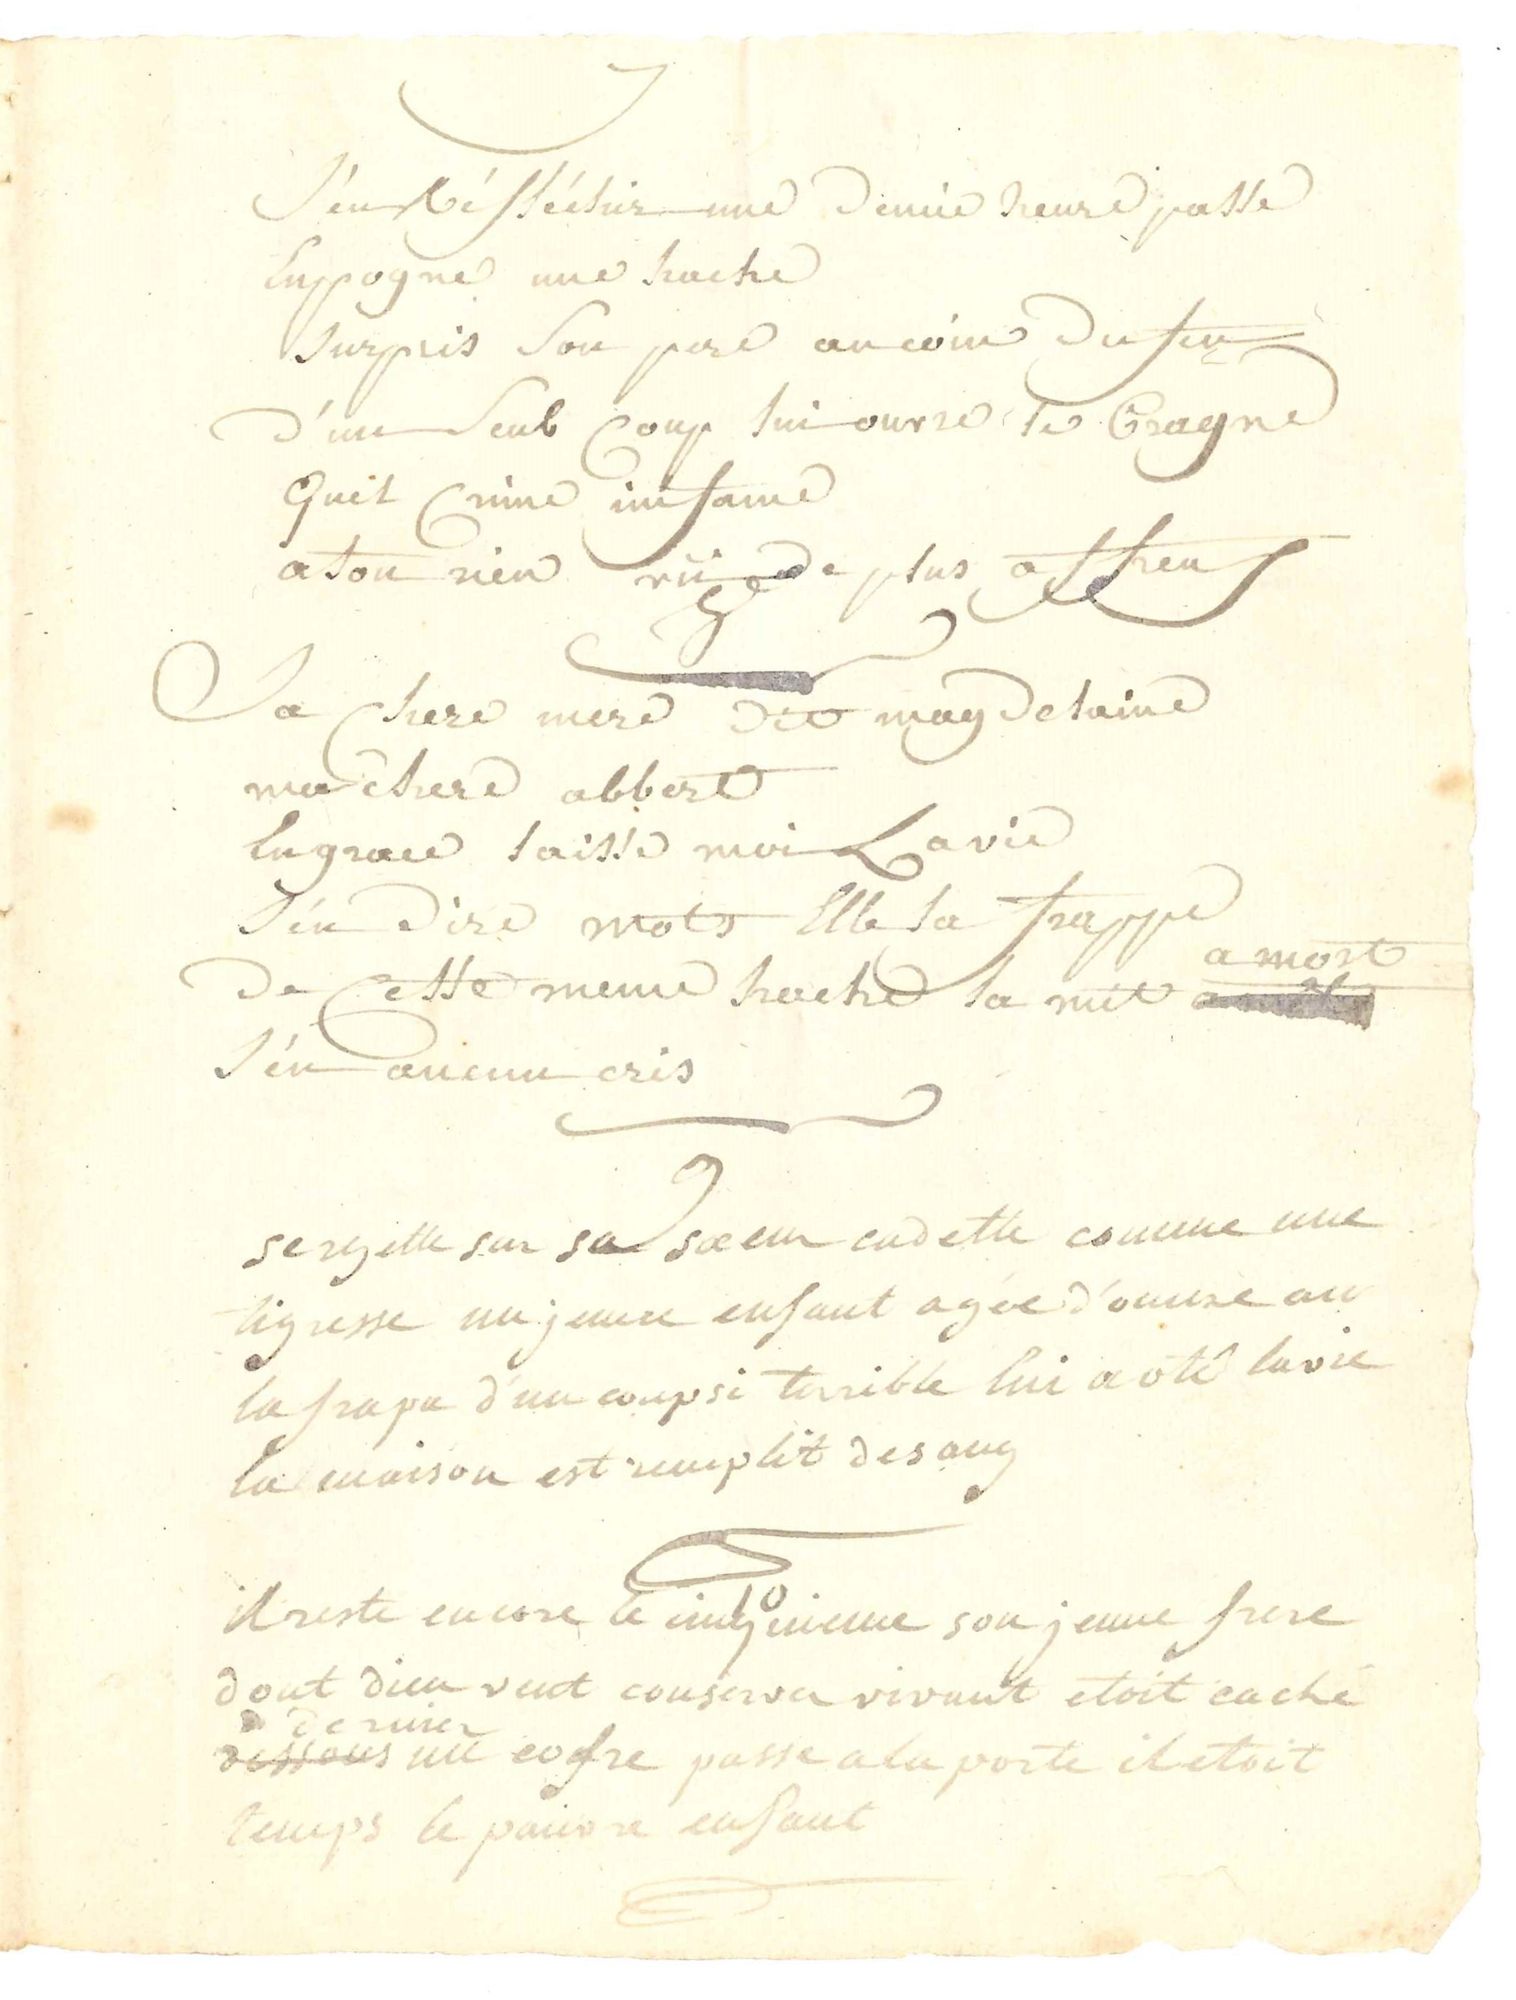 S'en Réfléchir une demie heure passe
Enpogne une hache
surpris Son pere au coin du feu
d'un Seul Coup lui ouvre le Cragne
Quel Crime infame
aton rien vü de plus affreux
Sa Chere mere dit magdelaine
ma chere abbert
En grace laisse moi La vie
S'en dire mots Elle la frappe
a mort
De Cette meme hache la mit
S'en aucun cris
se rejette sur sa sœur cadette comme une
tigresse un jeune enfant agée d'ounze an
la frapa d'un coup si terrible lui a oté la vie
la maison est remplit de sang
il reste encore le son jeune frere
dont dieu veut conserver vivant etoit caché
dernier
dessous un cofre passe a la porte il etoit
temps le pauvre enfant